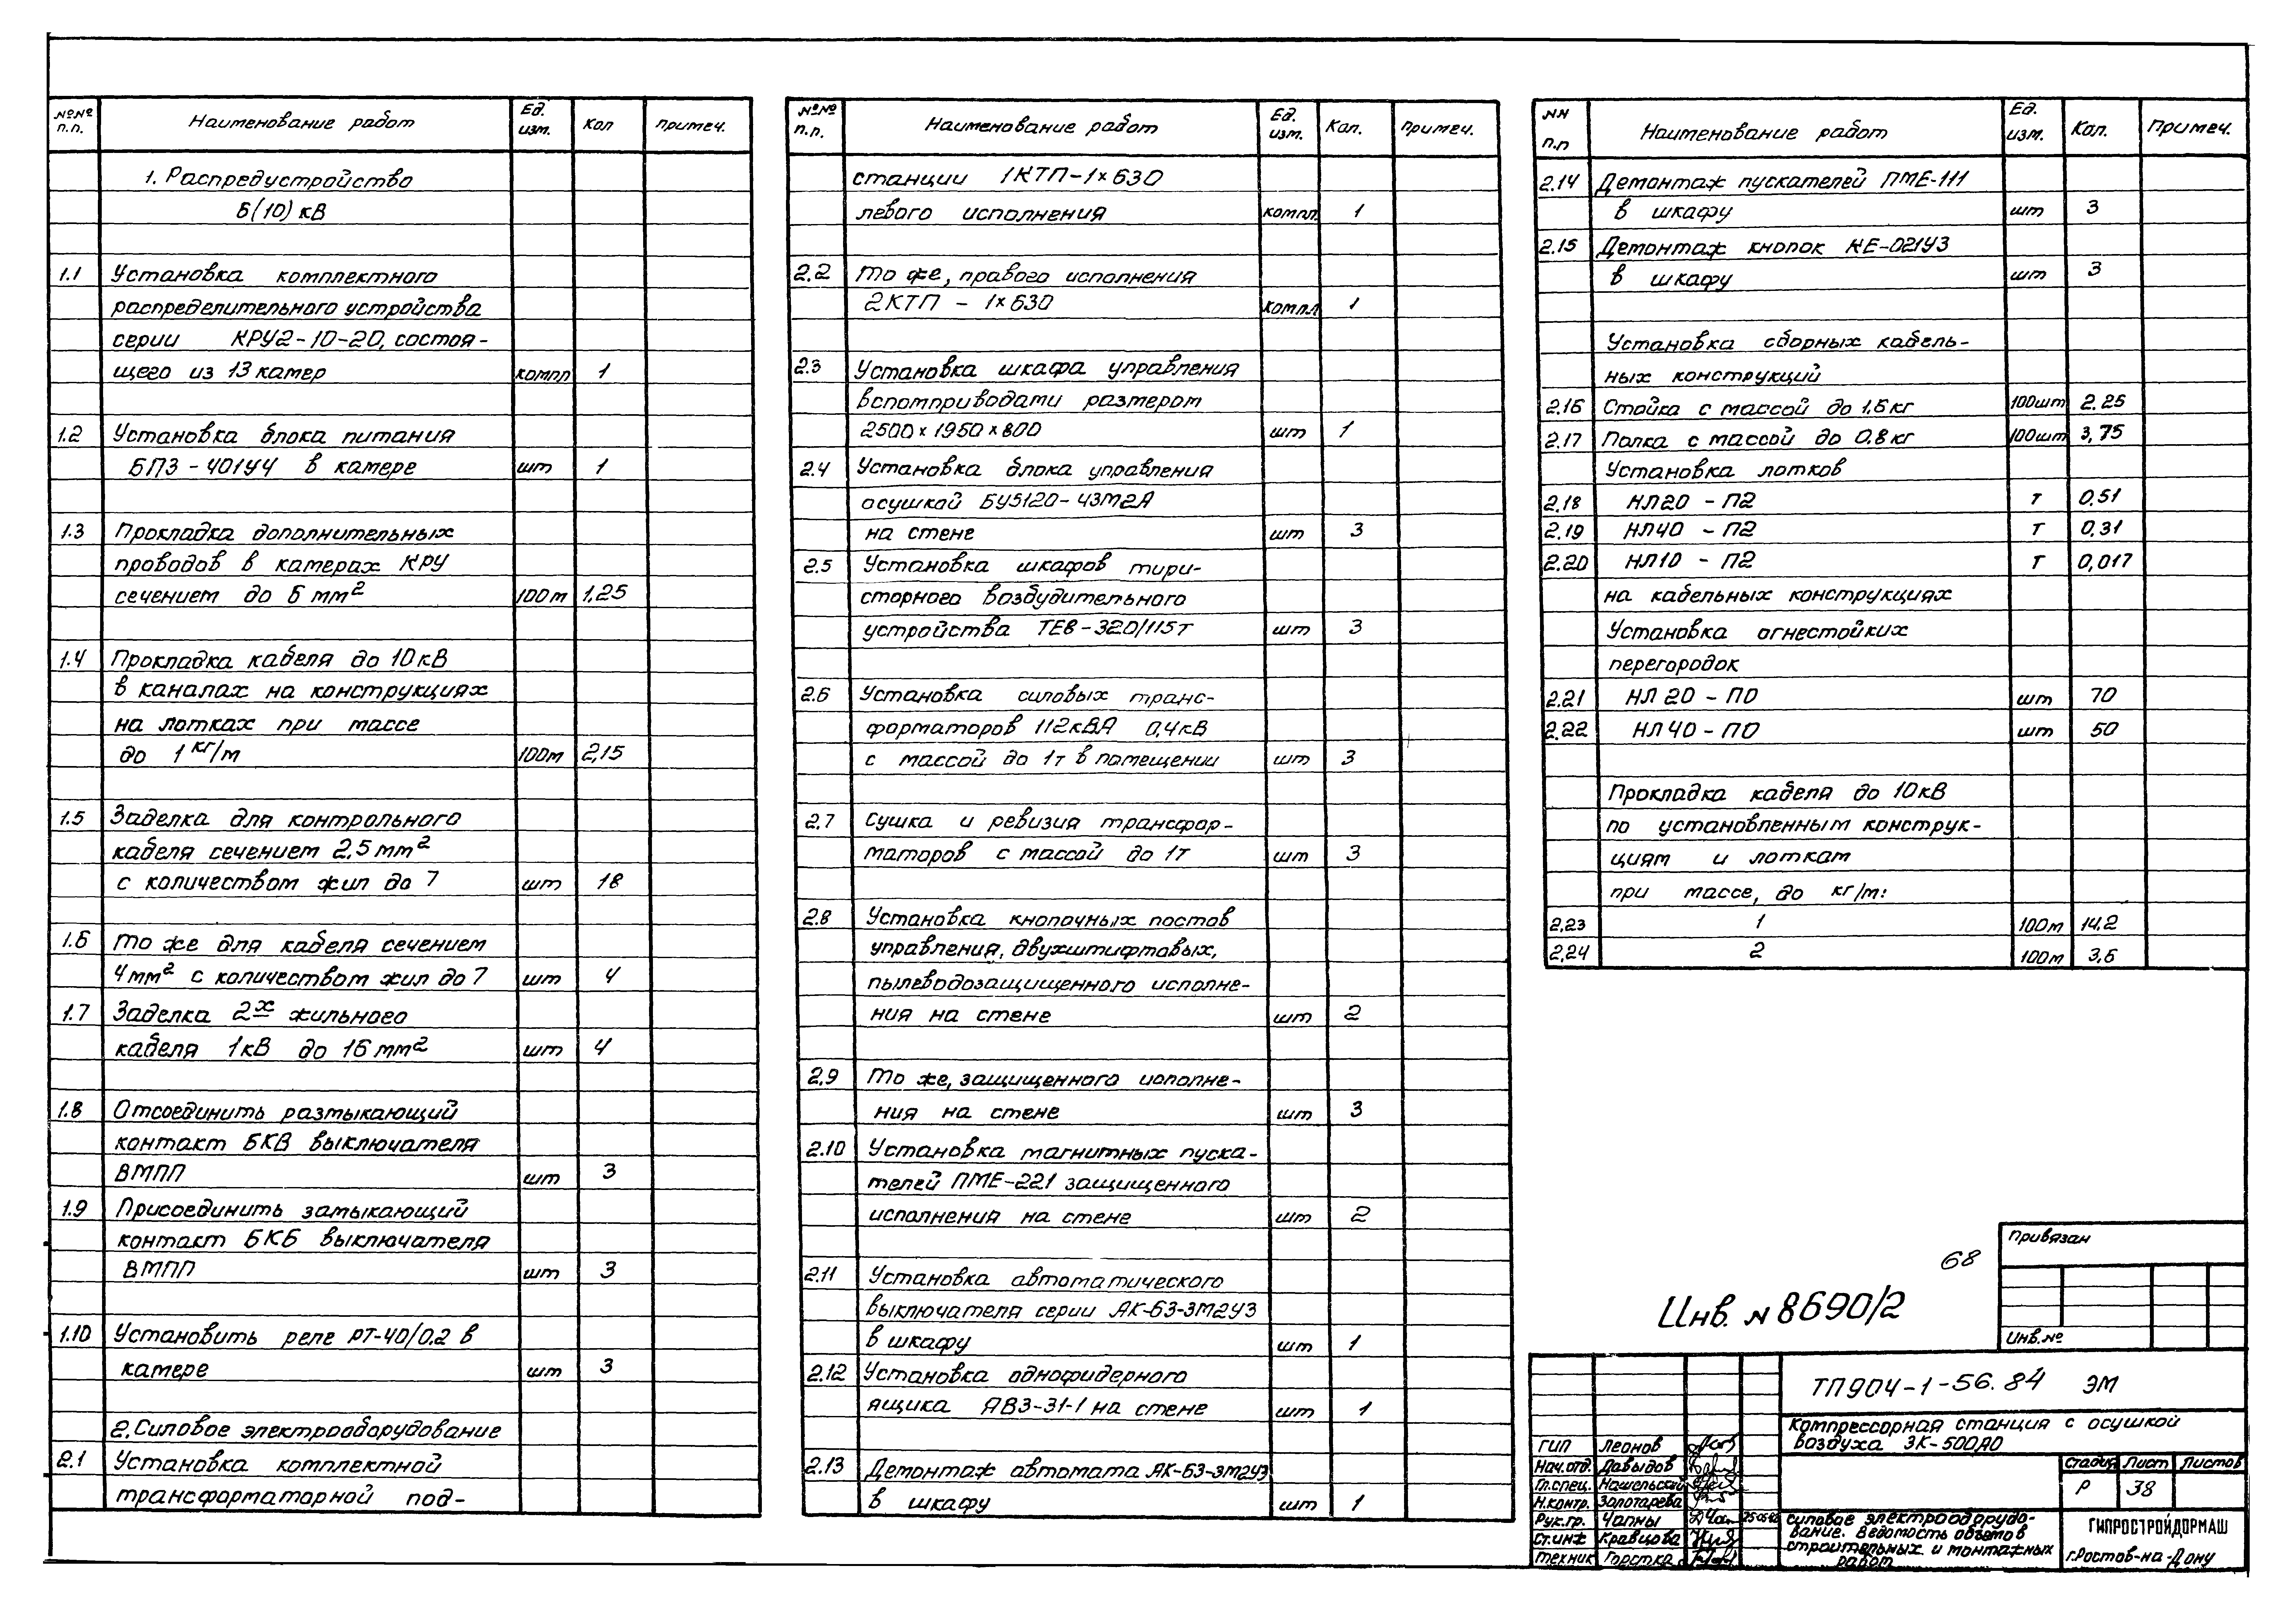 №№ п.п. Наименование работ Ед. изм. Кол примеч.
1. Распредустройство
6(10) кВ
1.1 Установка комплектного
распределительного устройства
серии КРУ2-10-20, состоя-
щего из 13 камер компл 1
1.2 Установка блока питания
БПЗ-401У4 в камере шт 1
1.3 Прокладка дополнительных
проводов в камерах КРУ
сечением до 6 мм² 100м 1,25
1.4 Прокладка кабеля до 10кВ
в каналах на конструкциях
на лотках при массе
до 1 кг/м 100м 2,15
1.5 Заделка для контрольного
кабеля сечением 2,5 мм²
с количеством жил до 7 шт 18
1.6 То же для кабеля сечением
4мм² с количеством жил до 7 шт 4
1.7 Заделка 2х жильного
кабеля 1кВ до 16 мм² шт 4
1.8 Отсоединить размыкающий
контакт БКВ выключателя
ВМПП шт 3
1.9 Присоединить замыкающий
контакт БКБ выключателя
ВМПП шт 3
1.10 Установить реле РТ-40/0.2 в
камере шт 3
2. Силовое электрооборудование
2.1 Установка комплектной
трансформаторной под-
№№ п.п. Наименование работ Ед. изм. Кол. примеч.
станции 1КТП-1×630
левого исполнения компл. 1
2.2 То же, правого исполнения
2КТП - 1×630 компл 1
2.3 Установка шкафа управления
вспомприводами размером
2500×1950×800 шт 1
2.4 Установка блока управления
осушкой БУ5120-43М2А
на стене шт 3
2.5 Установка шкафов тири-
сторного возбудительного
устройства ТЕВ-320/115т шт 3
2.6 Установка силовых транс-
форматоров 112кВА 0,4кВ
с массой до 1т в помещении шт 3
2.7 Сушка и ревизия трансфор-
маторов с массой до 1т шт 3
2.8 Установка кнопочных постов
управления, двухштифтовых,
пылеводозащищенного исполне-
ния на стене шт 2
2.9 То же, защищенного исполне-
ния на стене шт 3
2.10 Установка магнитных пуска-
телей ПМЕ-221 защищенного
исполнения на стене шт 2
2.11 Установка автоматического
выключателя серии АК-63-3М2У3
в шкафу шт 1
2.12 Установка однофидерного
ящика ЯВЗ-31-1 на стене шт 1
2.13 Демонтаж автомата АК-63-3М2У3
в шкафу шт 1
NN п.п Наименование работ Ед. изм. Кол. Примеч.
2.14 Демонтаж пускателей ПМЕ-111
в шкафу шт 3
2.15 Демонтаж кнопок КЕ-021У3
в шкафу шт 3
Установка сборных кабель-
ных конструкций
2.16 Стойка с массой до 1,6 кг 100шт 2.25
2.17 Полка с массой до 0,8 кг 100шт 3,75
Установка лотков
2.18 НЛ20 - П2 т 0,51
2.19 НЛ40 - П2 т 0,31
2.20 НЛ10 - П2 т 0,017
на кабельных конструкциях
Установка огнестойких
перегородок
2.21 НЛ 20 - ПО шт 70
2.22 НЛ 40 - ПО шт 50
Прокладка кабеля до 10кВ
по установленным конструк-
циям и лоткам
при массе, до кг/м:
2.23 1 100м 14,2
2.24 2 100м 3,6
68
Инв. N 8690/2
Привязан
Инв.№
ТП904-1-56.84 ЭМ
Компрессорная станция с осушкой
воздуха 3К-500А0
Стадия Лист Листов
Р 38
Силовое электрооборудо-
вание. Ведомость объемов
строительных и монтажных
работ
ГИПРОСТРОЙДОРМАШ
г.Ростов-на-Дону
ГИП Леонов
Нач.отд. Давыдов
Гл.спец. Нашельский
Н.контр. Золотарева
Рук.гр. Чапны
Ст.инж Кравцова
Техник Горстка